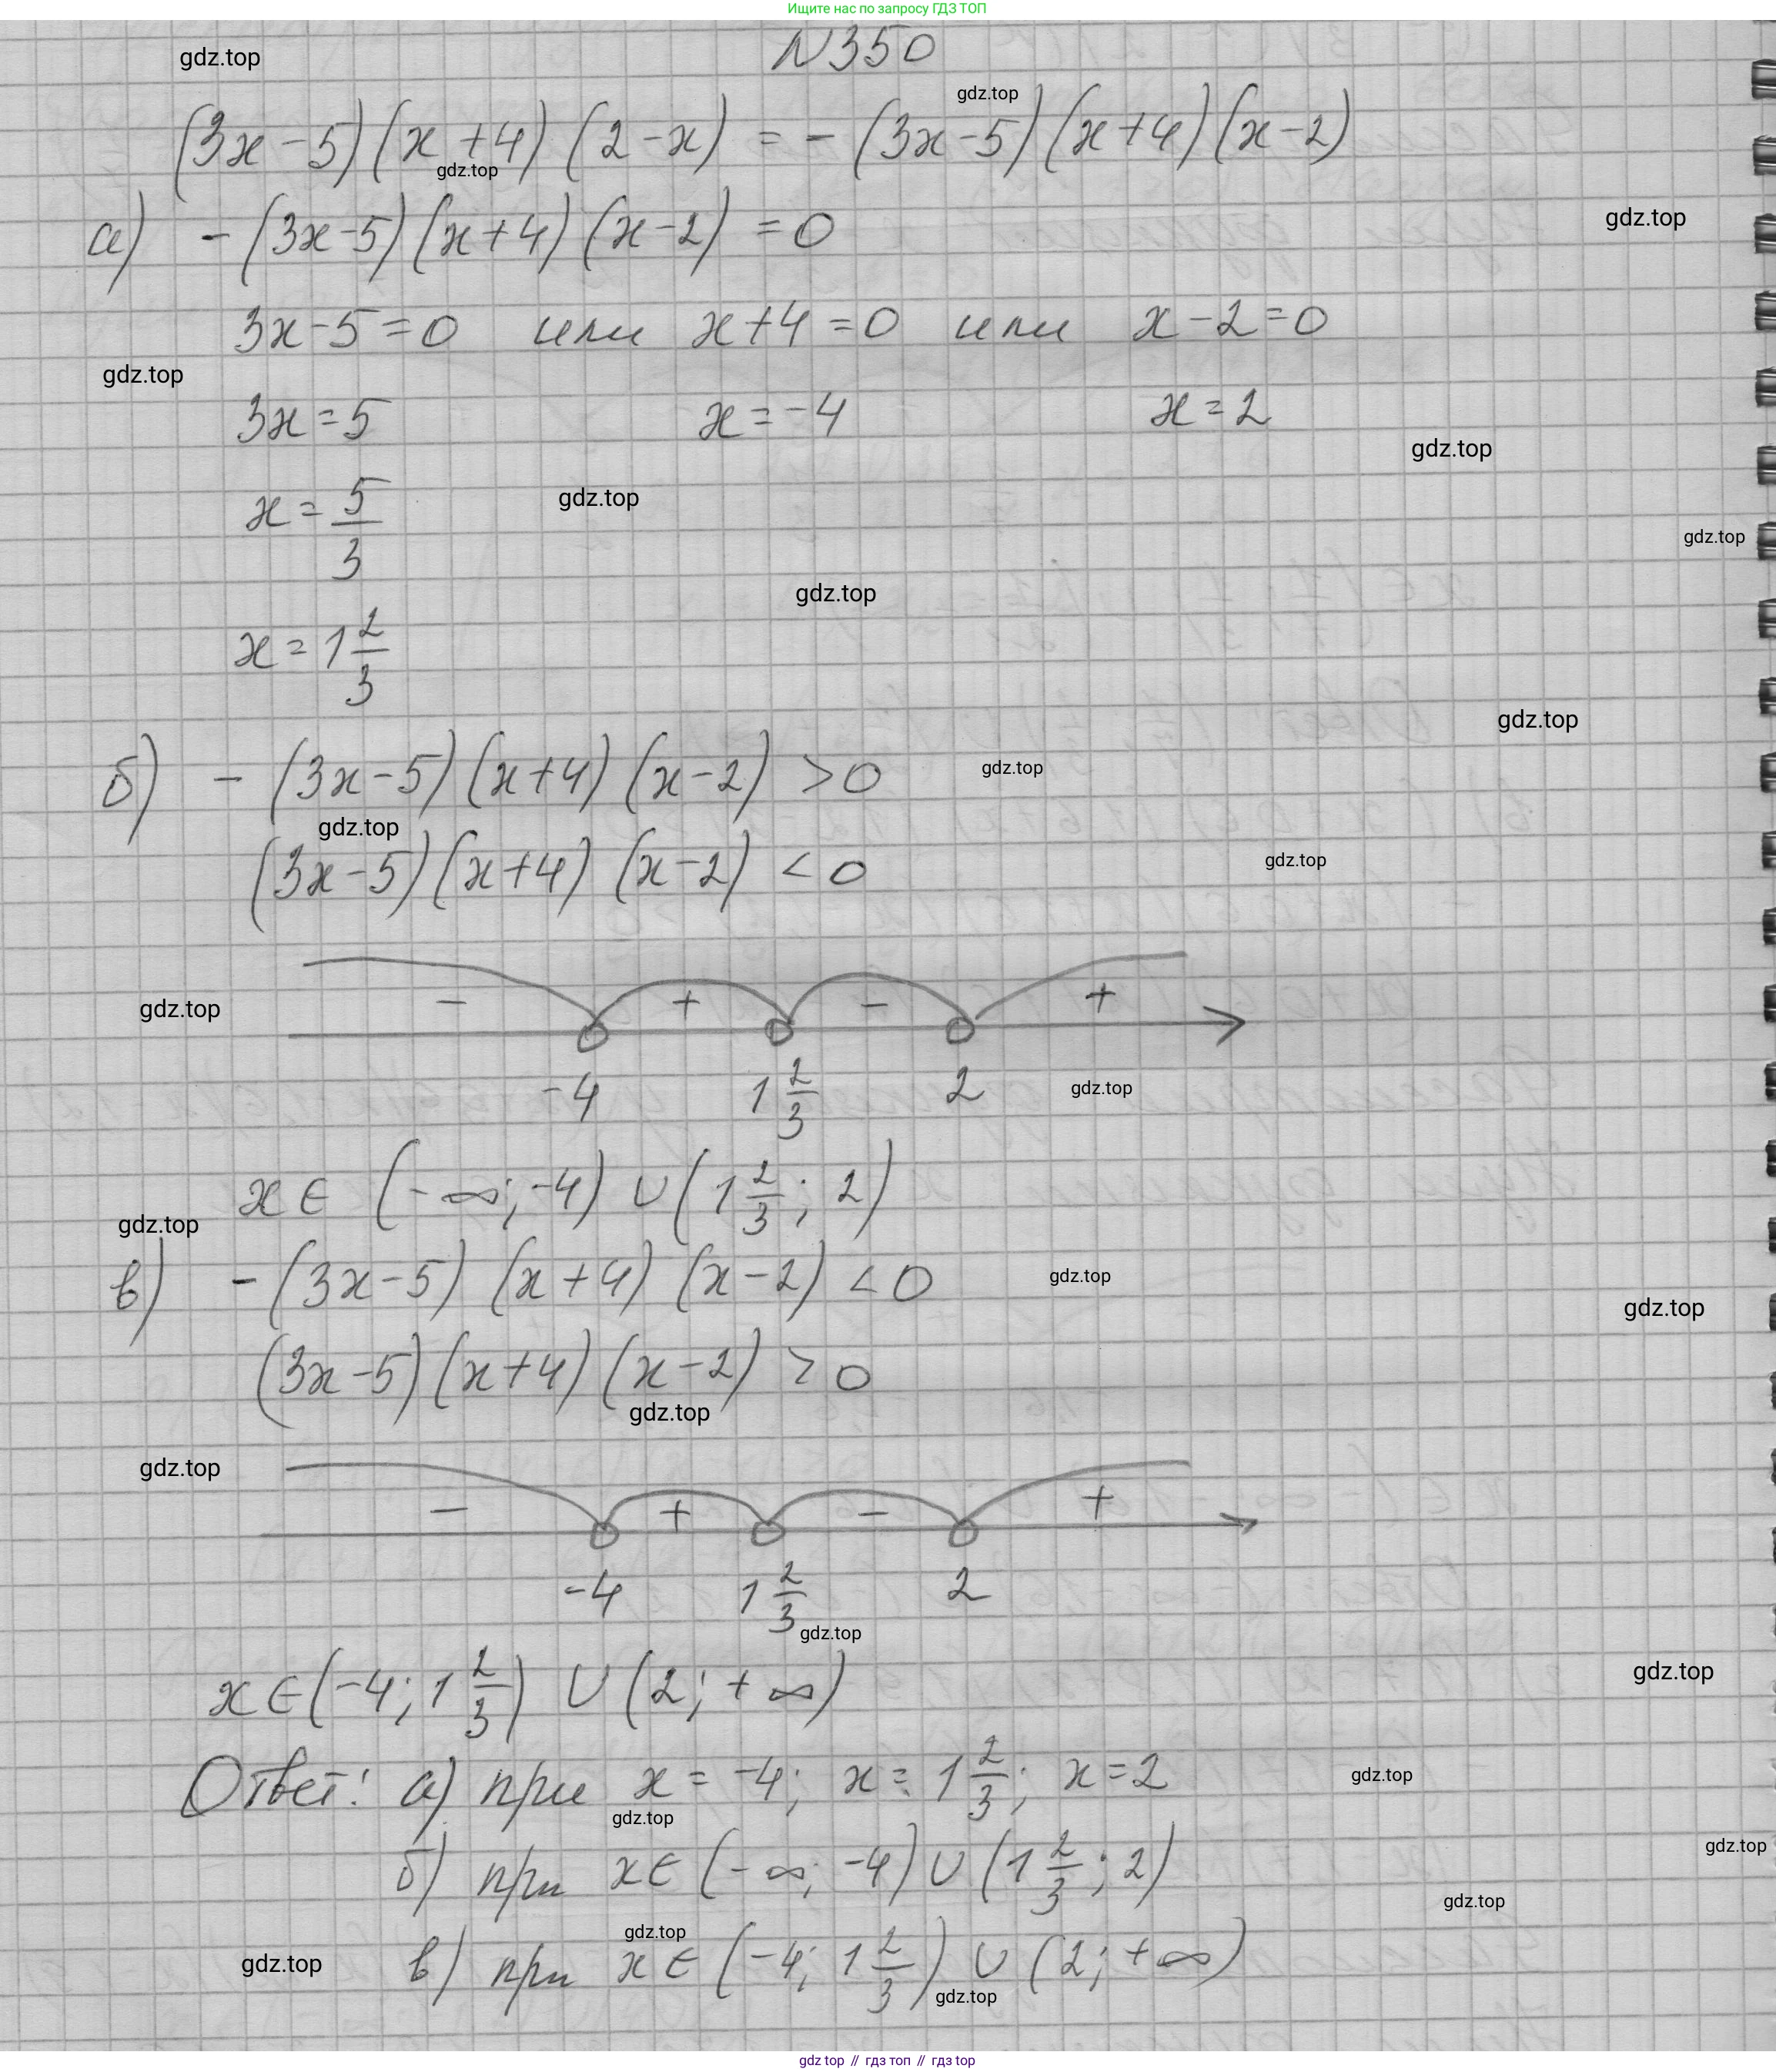 Ищите нас по запросу ГДЗ ТОП
N350
gdz.top
gdz.top
(3x-5)(x+4)(2-x) = -(3x-5)(x+4)(x-2)
gdz.top
а) -(3x-5)(x+4)(x-2) = 0
gdz.top
3x-5=0 или x+4=0 или x-2=0
gdz.top
3x=5 x=-4 x=2
gdz.top
x = 5/3
gdz.top
gdz.top
gdz.top
x = 1 2/3
gdz.top
б) -(3x-5)(x+4)(x-2) >0
gdz.top
gdz.top
(3x-5)(x+4)(x-2) <0
gdz.top
- + - +
gdz.top
-4 1 2/3 2
gdz.top
x∈ (-∞; -4) ∪ (1 2/3; 2)
gdz.top
в) -(3x-5)(x+4)(x-2) <0
gdz.top
gdz.top
(3x-5)(x+4)(x-2) >0
gdz.top
gdz.top
- + - +
-4 1 2/3 2
gdz.top
x∈(-4; 1 2/3) ∪ (2; +∞)
gdz.top
Ответ: а) при x = -4; x = 1 2/3; x=2
gdz.top
gdz.top
б) при x∈ (-∞; -4) ∪ (1 2/3; 2)
gdz.top
gdz.top
gdz.top
в) при x∈ (-4; 1 2/3) ∪ (2; +∞)
gdz.top
gdz.top
gdz top // гдз топ // гдз top